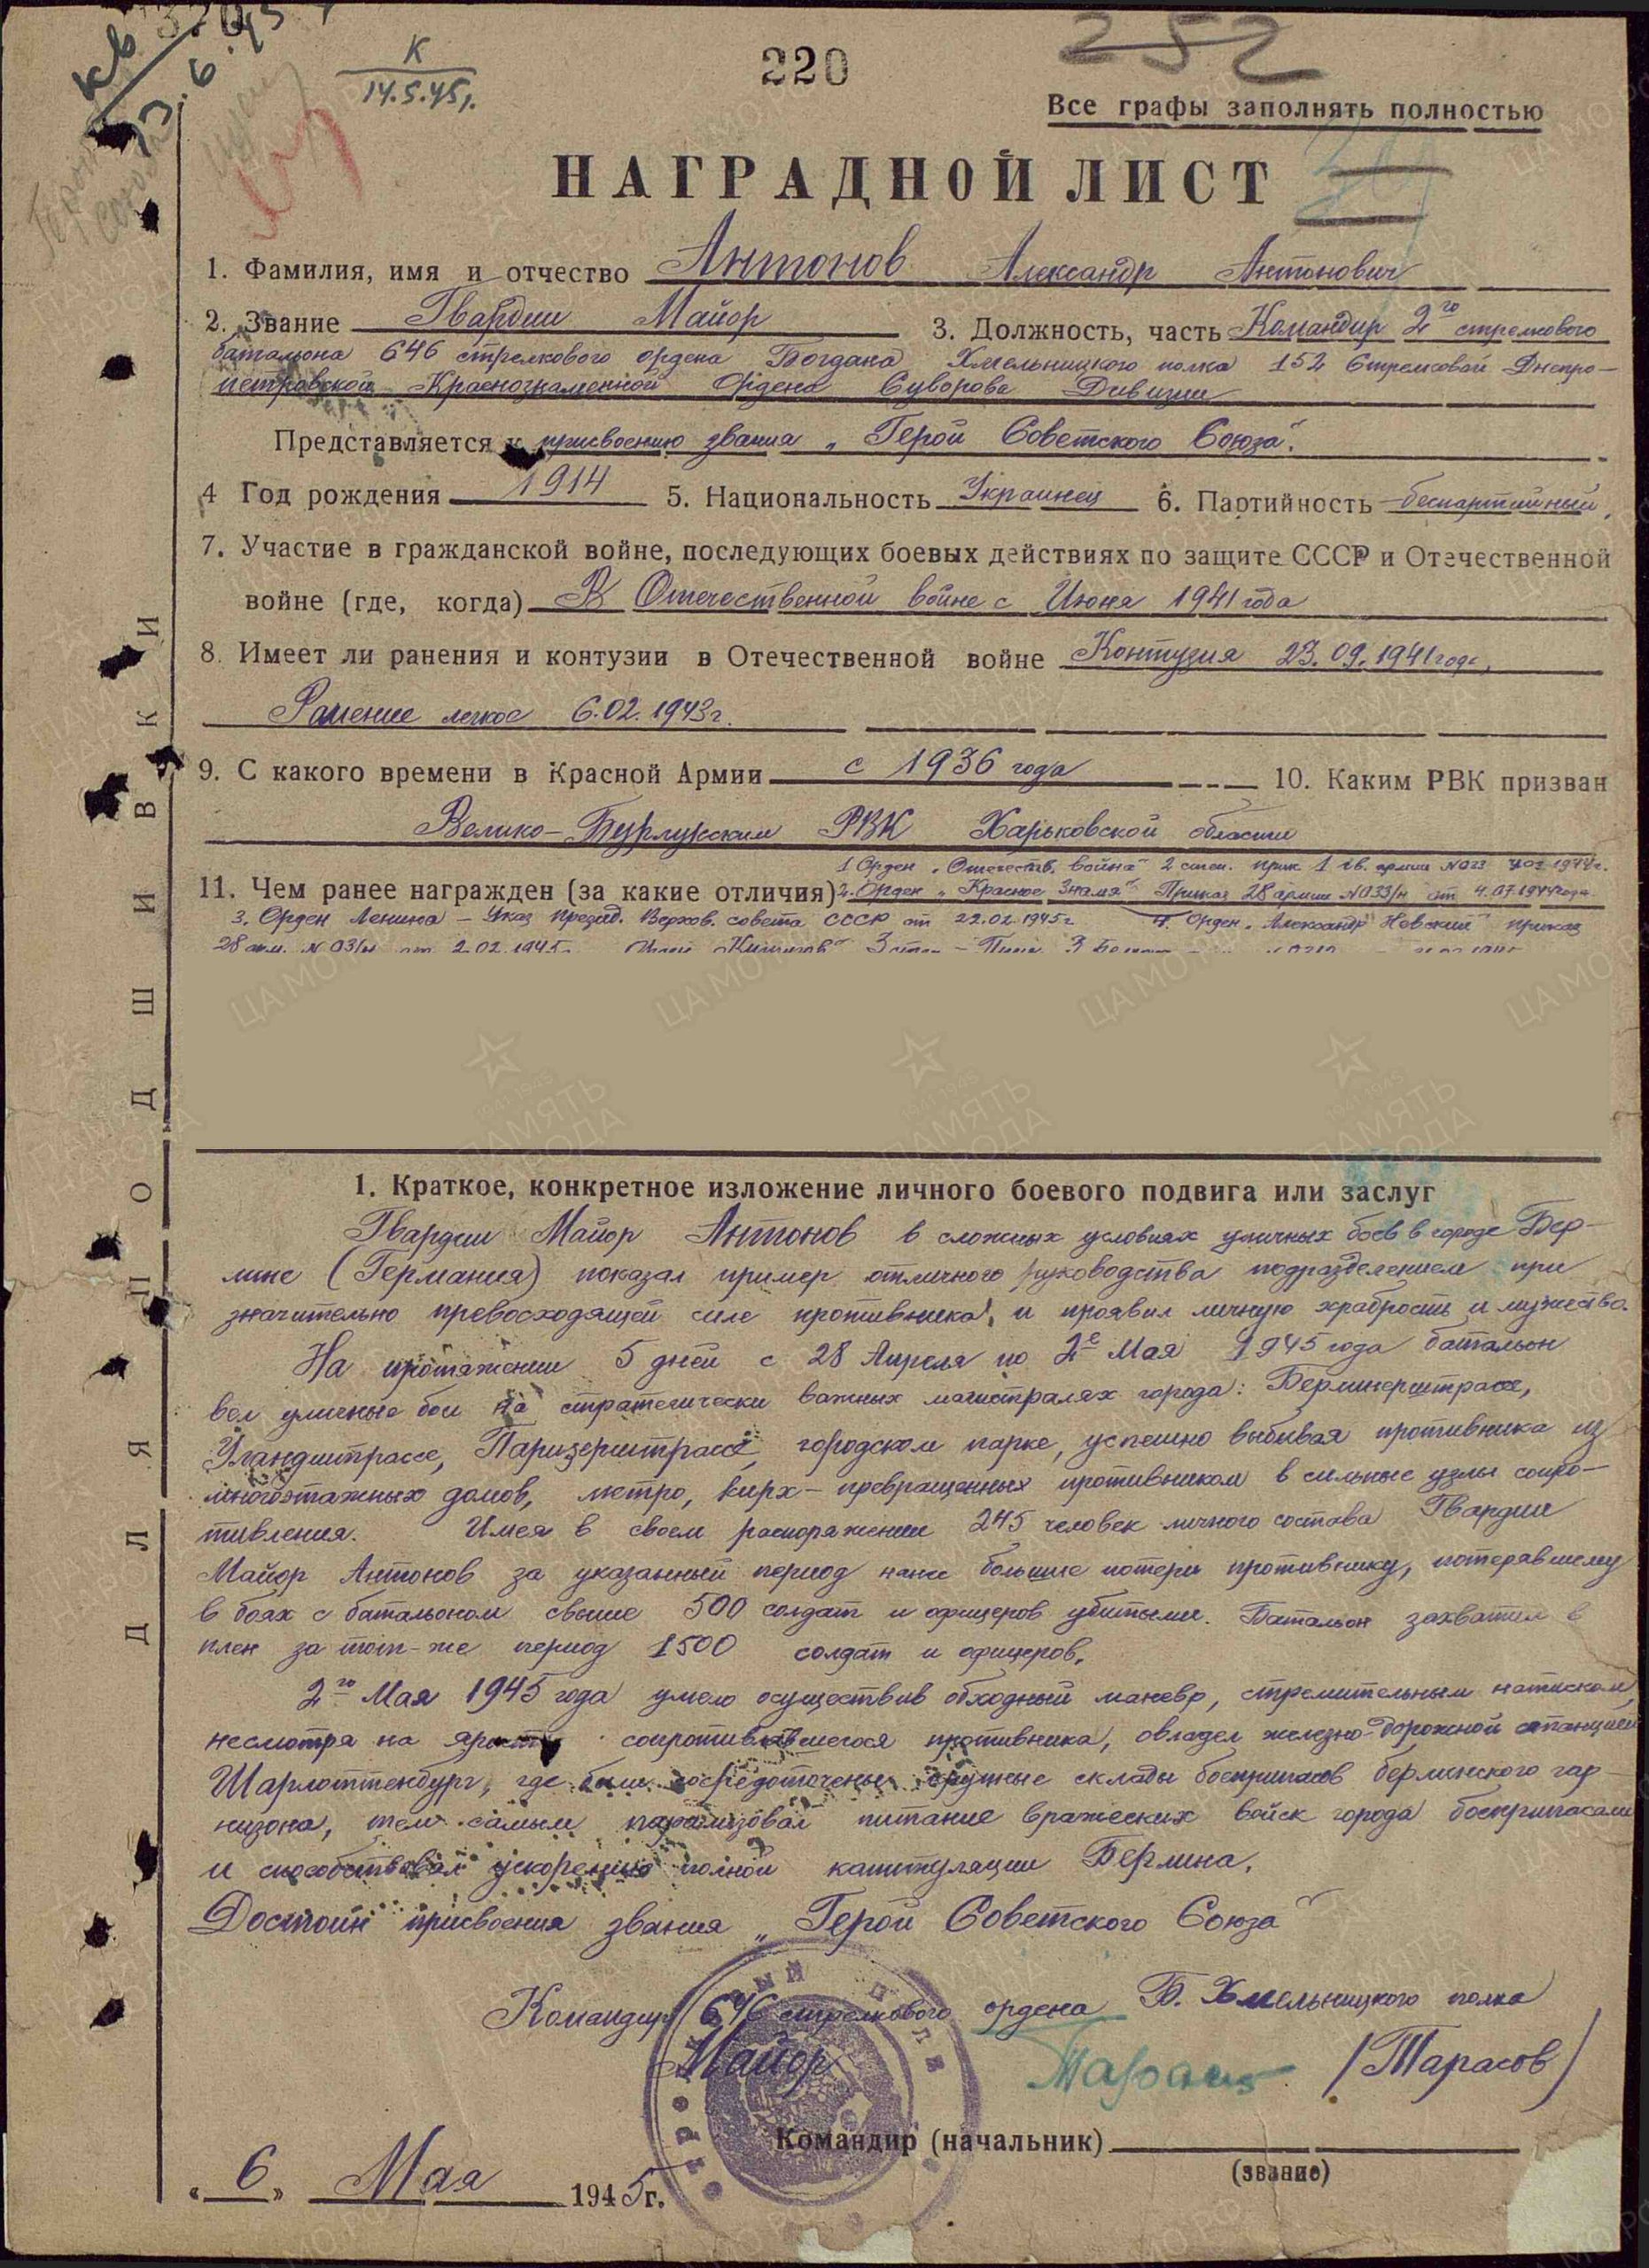 220
252
К
14.5.45г.
Все графы заполнять полностью
НАГРАДНОЙ ЛИСТ
1. Фамилия, имя и отчество Антонов Александр Антонович
2. Звание Гвардии Майор 3. Должность, часть Командир 2го стрелкового
батальона 646 стрелкового ордена Богдана Хмельницкого полка 152 Стрелковой Днепро-
петровской Краснознаменной Ордена Суворова Дивизии
Представляется к присвоению звания „Герой Советского Союза".
4 Год рождения 1914 5. Национальность Украинец 6. Партийность беспартийный.
7. Участие в гражданской войне, последующих боевых действиях по защите СССР и Отечественной
войне (где, когда) В Отечественной войне с Июня 1941 года
8. Имеет ли ранения и контузии в Отечественной войне Контузия 23.09.1941 года,
Ранение легкое 6.02.1943г.
9. С какого времени в Красной Армии с 1936 года 10. Каким РВК призван
Велико-Бурлукским РВК Харьковской области
1 Орден „Отечеств. война" 2 степ. прик. 1 гв. армии
11. Чем ранее награжден (за какие отличия) 2. Орден „Красное Знамя" Приказ 28 армии №033/н от 4.07.1944 года
3. Орден Ленина – Указ презид. Верхов. совета СССР от 22.02.1945г 4. Орден „Александр Невский" приказ
28 арм. №03/н от 2.02.1945г.
1. Краткое, конкретное изложение личного боевого подвига или заслуг
Гвардии Майор Антонов в сложных условиях уличных боев в городе Бер-
лине (Германия) показал пример отличного руководства подразделением при
значительно превосходящей силе противника, и проявил личную храбрость и мужество.
На протяжении 5 дней с 28 Апреля по 2е Мая 1945 года батальон
вел уличные бои на стратегически важных магистралях города: Берлинерштрассе,
Уландштрассе, Паризерштрассе, городском парке, успешно выбивая противника из
многоэтажных домов, метро, кирх – превращенных противником в сильные узлы сопро-
тивления. Имея в своем распоряжении 245 человек личного состава Гвардии
Майор Антонов за указанный период нанес большие потери противнику, потерявшему
в боях с батальоном свыше 500 солдат и офицеров убитыми. Батальон захватил в
плен за тот-же период 1500 солдат и офицеров.
2го Мая 1945 года умело осуществив обходный маневр, стремительным натиском,
несмотря на ярость сопротивлявшегося противника, овладел железно-дорожной станцией
Шарлоттенбург, где были сосредоточены крупные склады боеприпасов берлинского гар-
низона, тем самым парализовал питание вражеских войск города боеприпасами
и способствовал ускорению полной капитуляции Берлина.
Достоин присвоения звания „Герой Советского Союза"
Командир 646 стрелкового ордена Б. Хмельницкого полка
Майор Тарасов (Тарасов)
Командир (начальник)
(звание)
„6" Мая 1945г.
ДЛЯ ПОДШИВКИ
ПАМЯТЬ НАРОДА
ЦА МО РФ